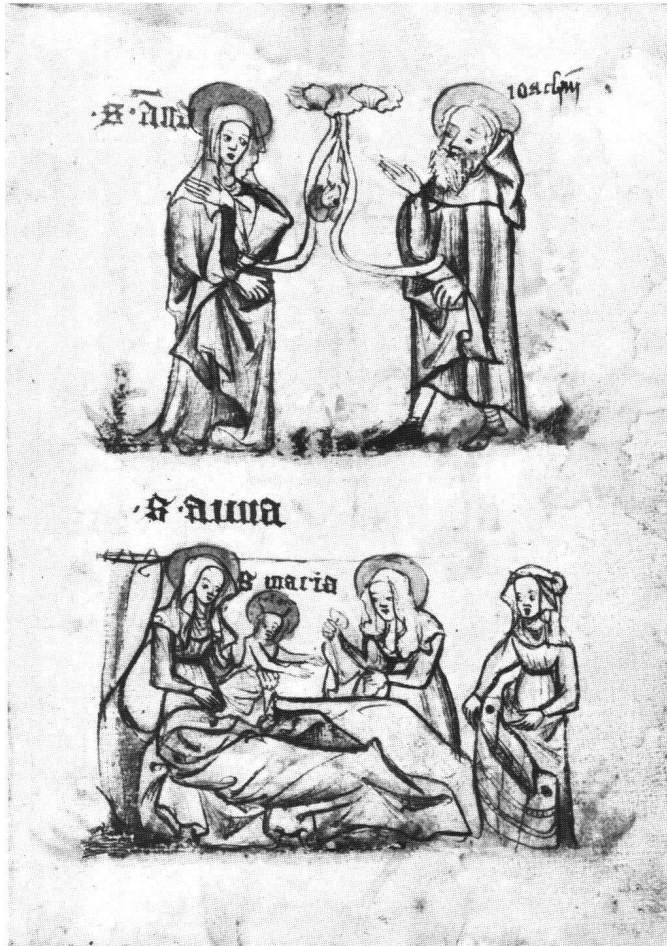 ·S· āna
ioachī
·S· anna
S maria